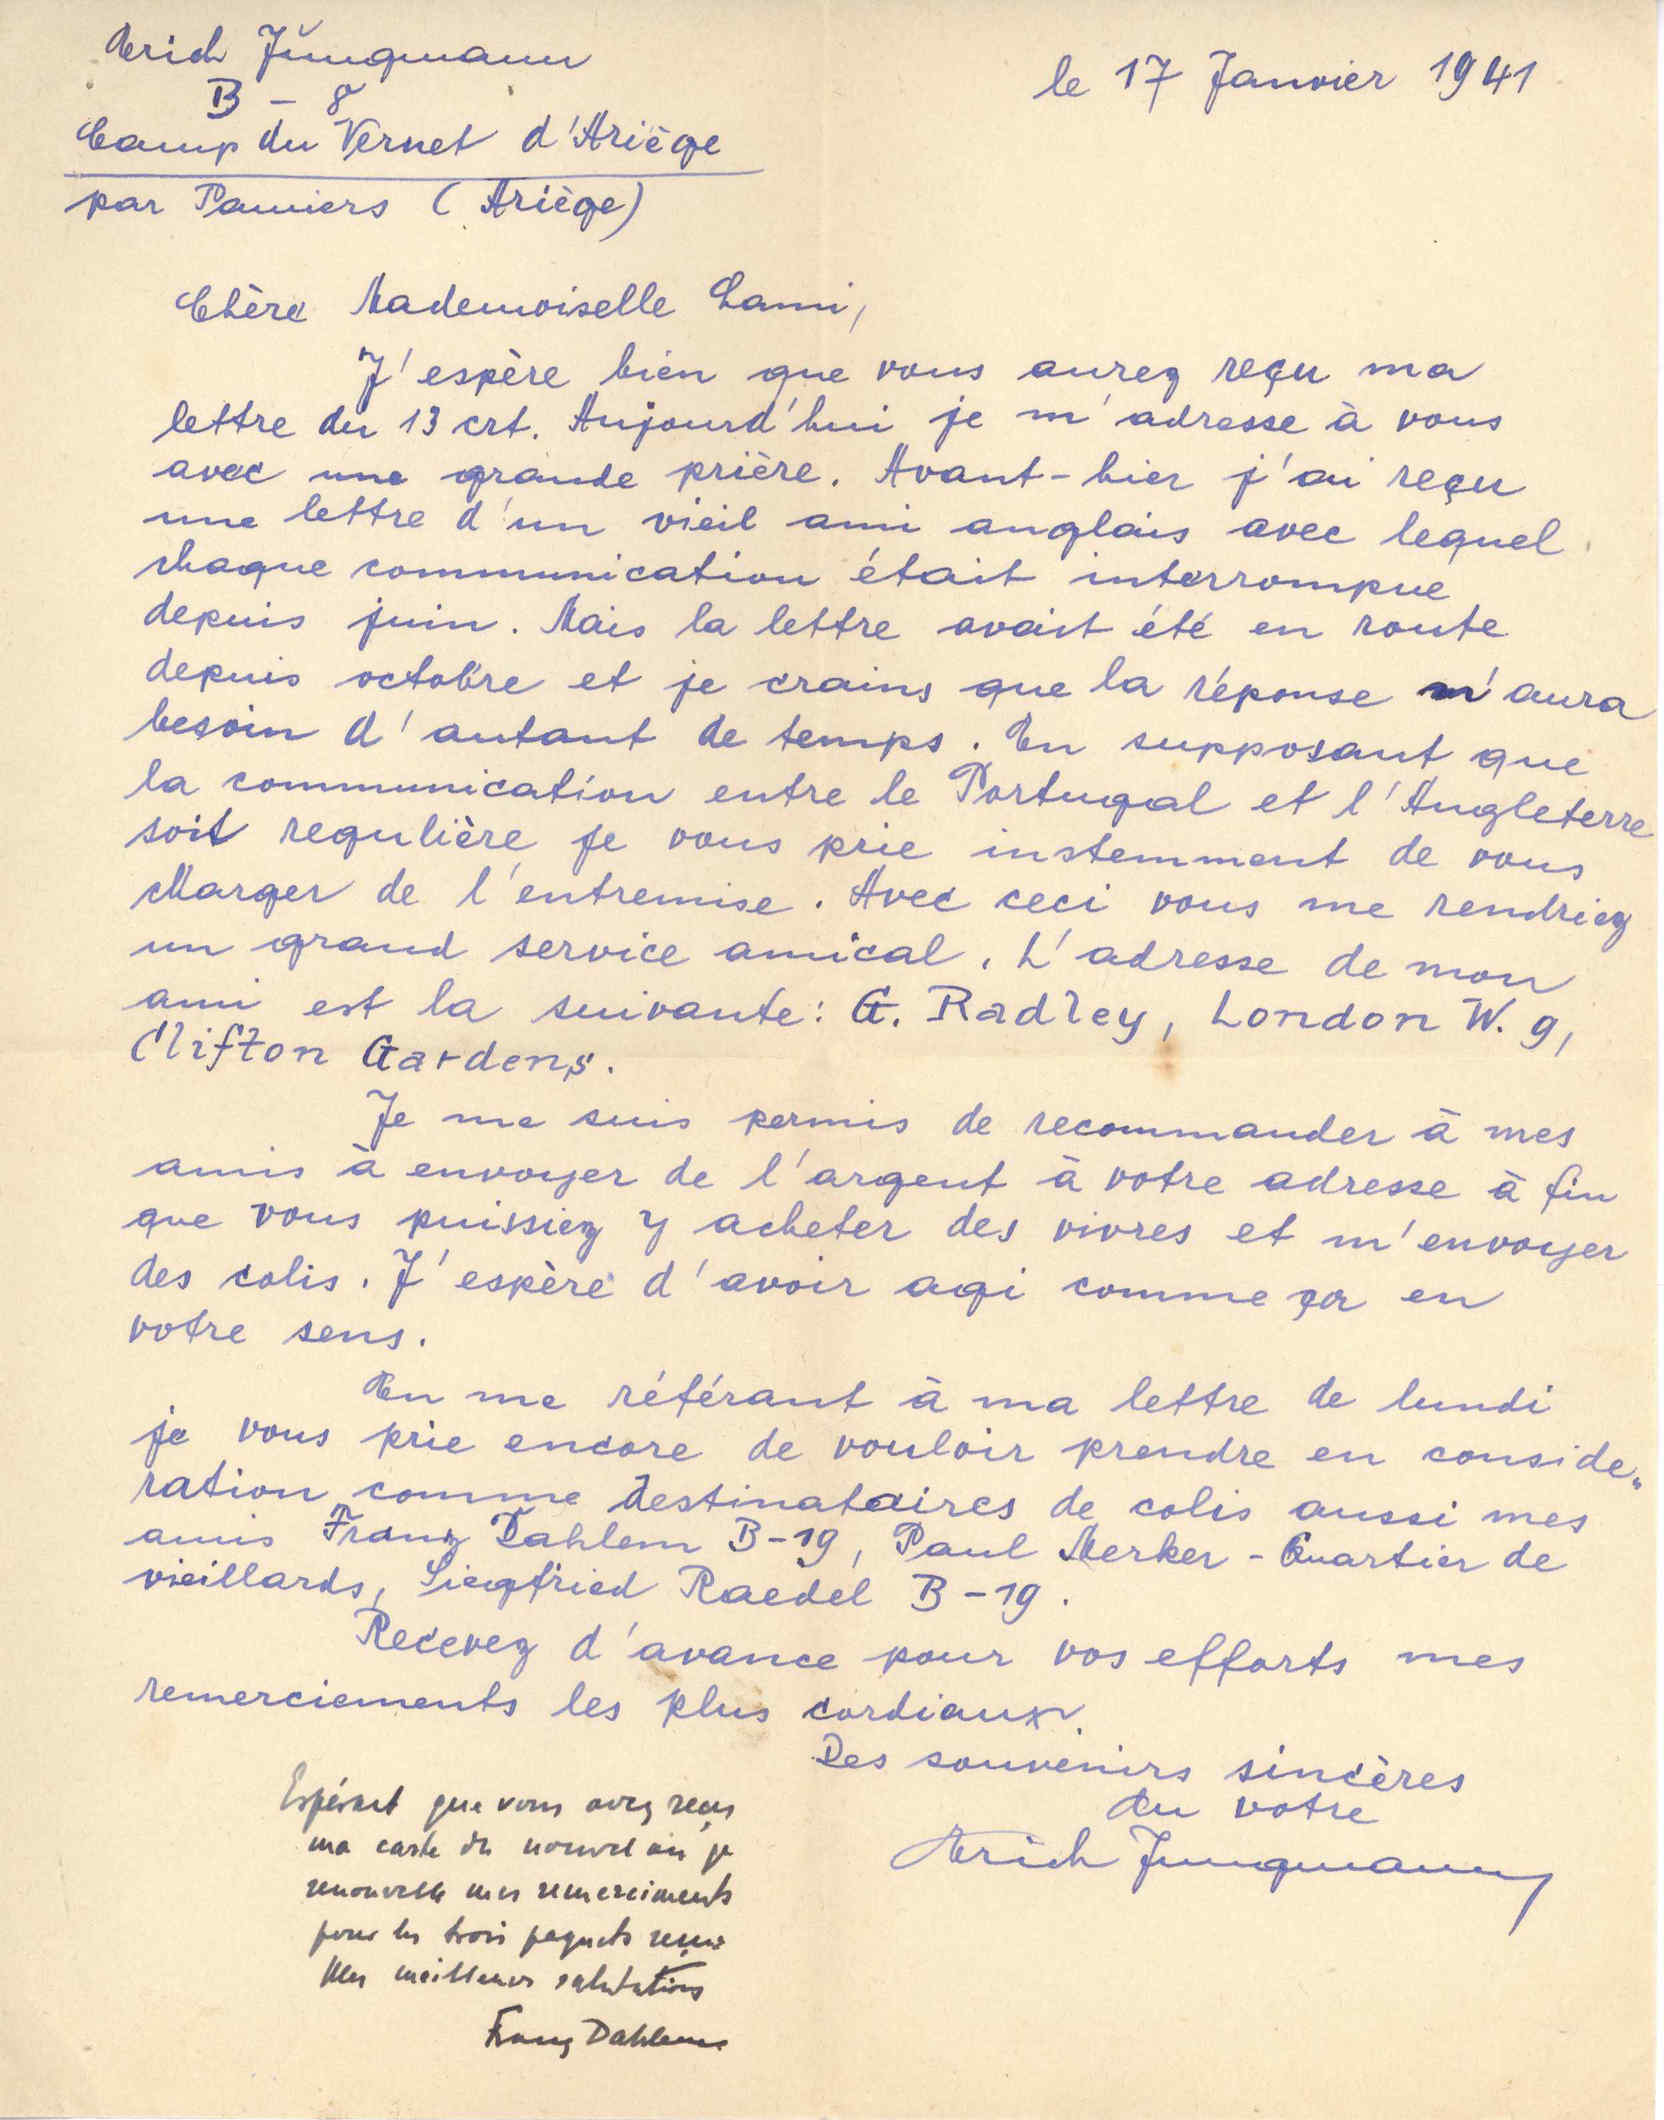 Erich Jungmann
B - 8
Camp du Vernet d'Ariège
par Pamiers (Ariège)
le 17 Janvier 1941
Chère Mademoiselle Lami,
J'espère bien que vous aurez reçu ma
lettre du 13 crt. Aujourd'hui je m'adresse à vous
avec une grande prière. Avant-hier j'ai reçu
une lettre d'un vieil ami anglais avec lequel
chaque communication était interrompue
depuis juin. Mais la lettre avait été en route
depuis octobre et je crains que la réponse n'aura
besoin d'autant de temps. En supposant que
la communication entre le Portugal et l'Angleterre
soit regulière je vous prie instemment de vous
charger de l'entremise. Avec ceci vous me rendriez
un grand service amical. L'adresse de mon
ami est la suivante: G. Radley, London W. 9,
Clifton Gardens.
Je me suis permis de recommander à mes
amis à envoyer de l'argent à votre adresse à fin
que vous puissiez y acheter des vivres et m'envoyer
des colis. J'espère d'avoir agi comme ça en
votre sens.
En me référant à ma lettre de lundi
je vous prie encore de vouloir prendre en conside-
ration comme destinataires de colis aussi mes
amis Franz Dahlem B-19, Paul Merker - Quartier de
vieillards, Siegfried Raedel B-19.
Recevez d'avance pour vos efforts mes
remerciements les plus cordiaux.
Des souvenirs sincères
du votre
Erich Jungmann
Espérant que vous avez reçu
ma carte du nouvel an je
renouvelle mes remerciments
pour les trois paquets reçus
Mes meilleures salutations
Franz Dahlem